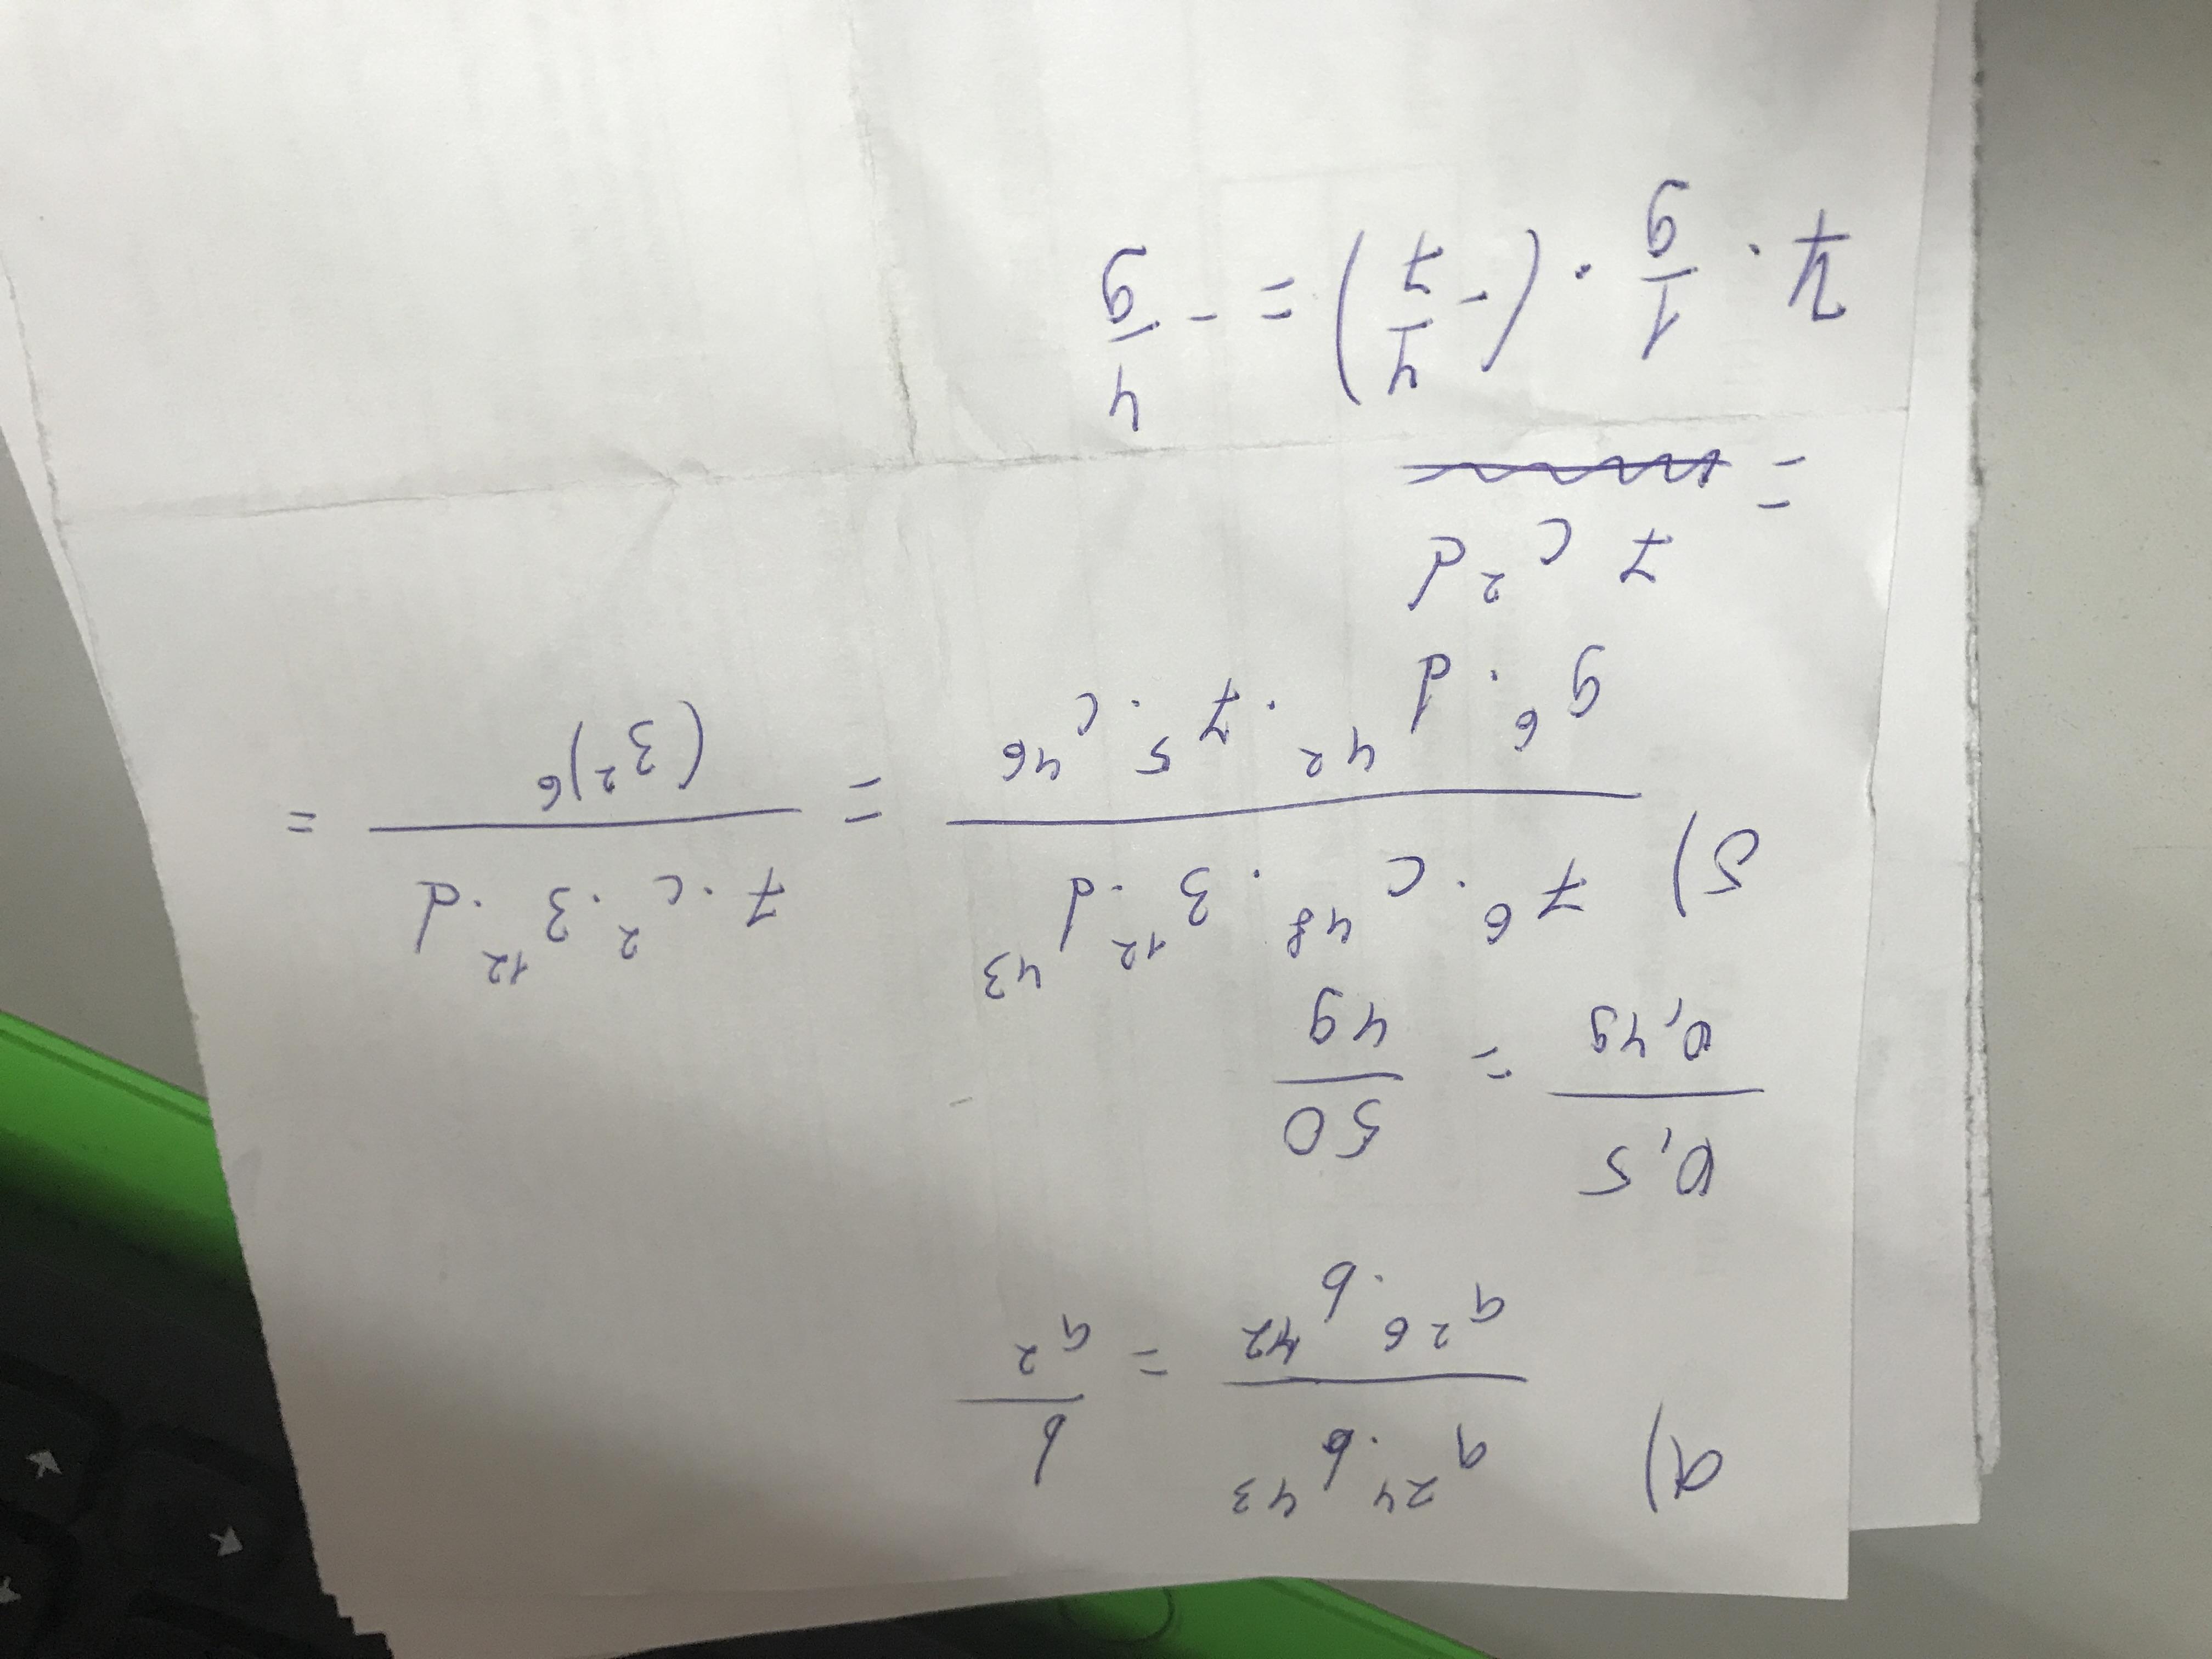 a) a^24 · b^43 / a^26 · b^42 = b / a^2
0,5 / 0,49 = 50 / 49
б) 7^6 · c^48 · 3^12 · d^43 / 9^6 · d^42 · 7^5 · c^46 = 7 · c^2 · 3^12 · d / (3^2)^6 =
= 7 c^2 d
7 · 1/9 · (- 4/7) = - 4/9